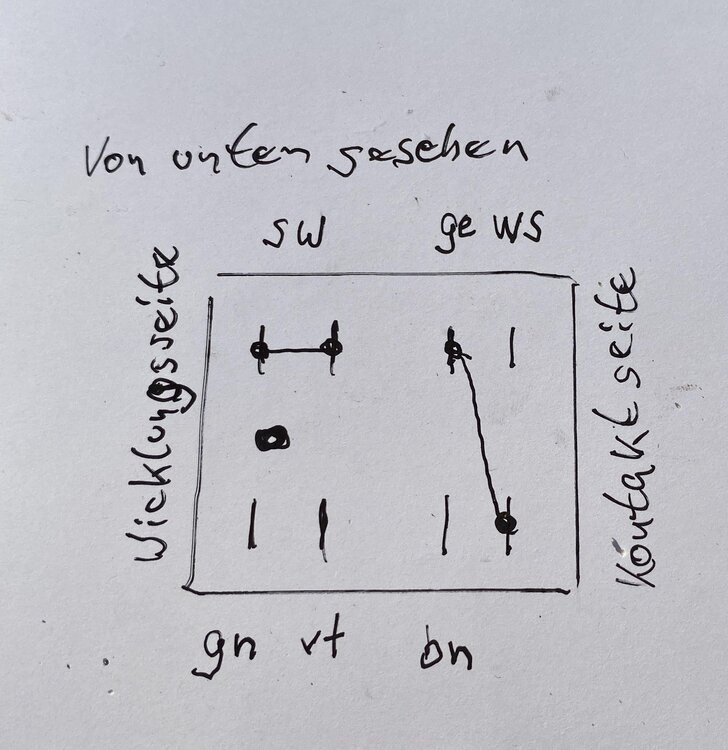 Von unten gesehen
sw ge ws
Wicklungsseite
Kontaktseite
gn rt bn